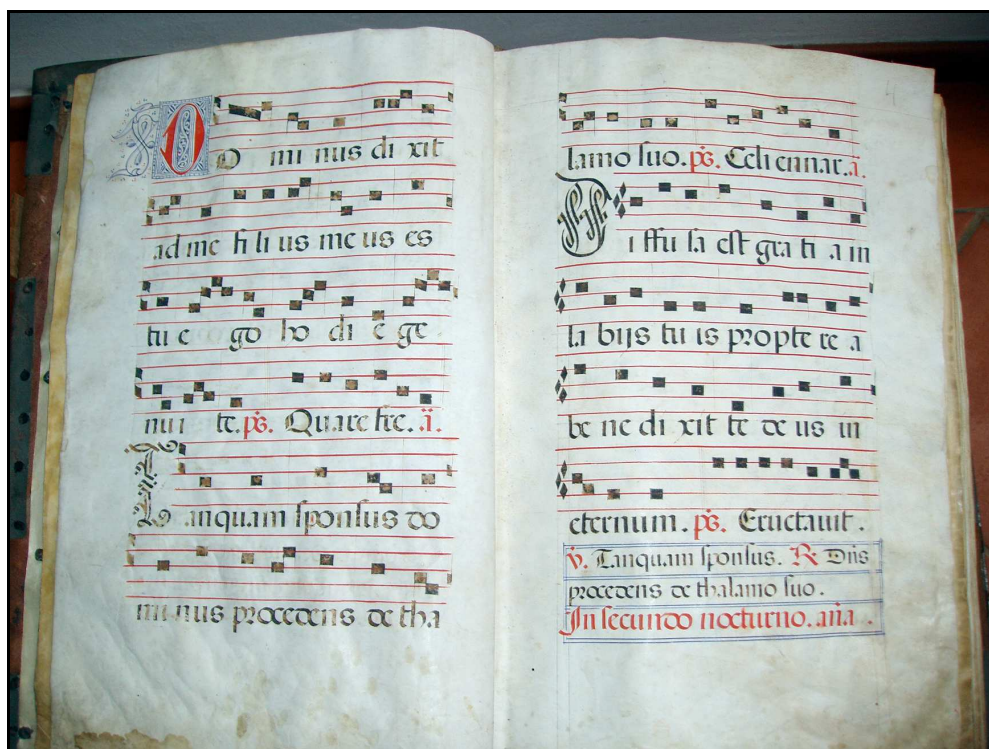 Do mi nus di xit
ad me fi li us me us es
tu e go ho di e ge
nui te. ps. Quare fre. a.
Tanquam sponsus do
mi nus procedens de tha
lamo suo. ps. Celi ennar. a.
Diffu sa est gra ti a in
la bijs tu is propte re a
be ne di xit te de us in
eternum. ps. Eructauit.
v. Tanquam sponsus. R Dñs
procedens de thalamo suo.
In secundo nocturno. aña.